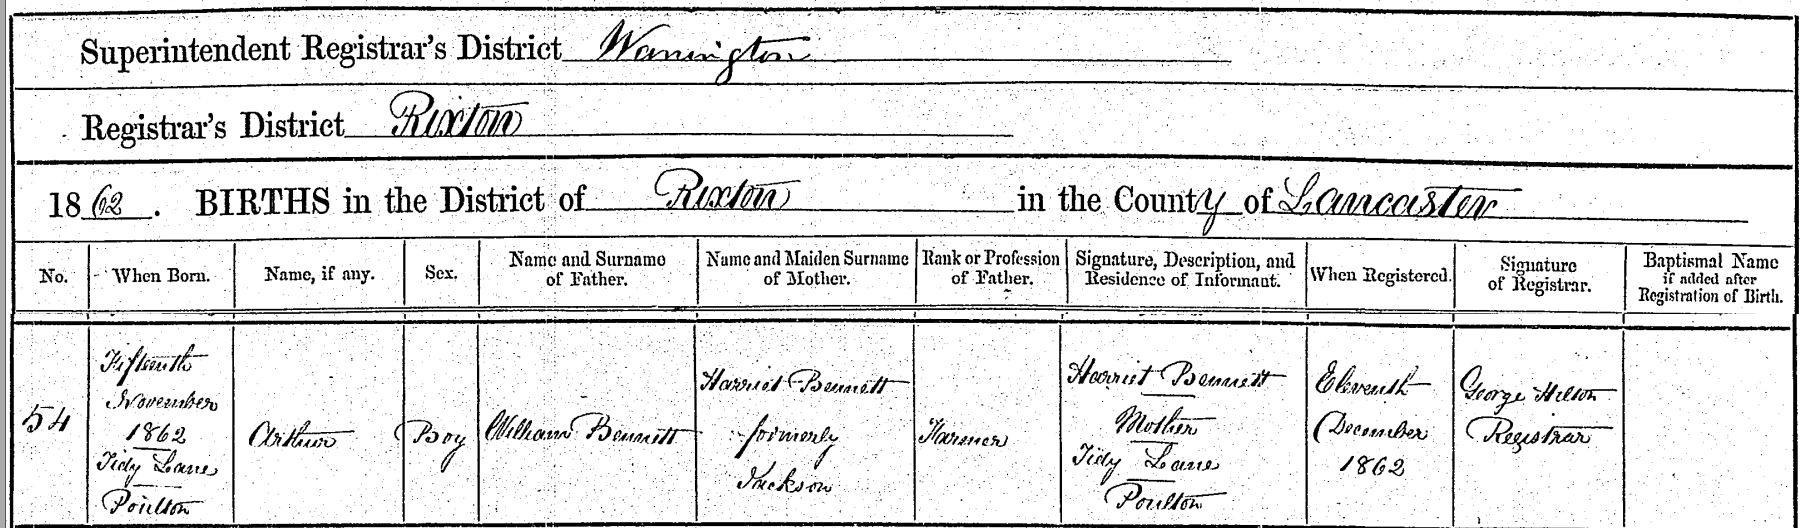 Superintendent Registrar's District Warrington
Registrar's District Rixton
1862. BIRTHS in the District of Rixton in the County of Lancaster
No. When Born. Name, if any. Sex. Name and Surname of Father. Name and Maiden Surname of Mother. Rank or Profession of Father. Signature, Description, and Residence of Informant. When Registered. Signature of Registrar. Baptismal Name if added after Registration of Birth.
54
Fifteenth
November
1862
Tidy Lane
Poulton
Arthur
Boy
William Bennett
Harriet Bennett
formerly
Jackson
Farmer
Harriet Bennett
Mother
Tidy Lane
Poulton
Eleventh
December
1862
George Hilton
Registrar